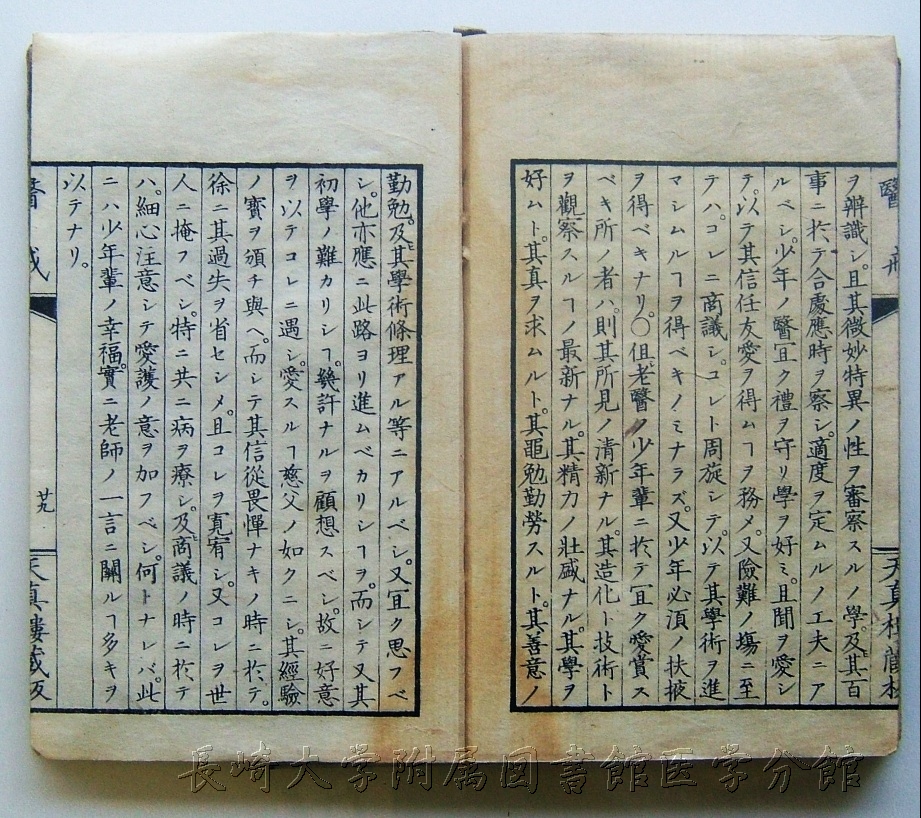 醫戒
天真樓藏板
ヲ辨識シ。且其微妙特異ノ性ヲ審察スルノ學。及其百
事ニ於テ合處應時ヲ察シ。適度ヲ定ムルノ工夫ニア
ルベシ。少年ノ醫冝ク禮ヲ守リ學ヲ好ミ。且聞ヲ愛シ
テ。以テ其信任友愛ヲ得ムヿヲ務メ。又險難ノ塲ニ至
テハ。コレニ商議シ。コレト周旋シテ。以テ其學術ヲ進
マシムルヿヲ得ベキノミナラズ。又少年必須ノ扶掖
ヲ得ベキナリ。〇但老醫ノ少年輩ニ於テ冝ク愛賞ス
ベキ所ノ者ハ。則其所見ノ清新ナル。其造化ト技術ト
ヲ觀察スルヿノ最新ナル。其精力ノ壯盛ナル。其學ヲ
好ムト。其真ヲ求ムルト。其黽勉勤勞スルト。其善意ノ
勤勉。及其學術條理アル等ニアルベシ。又冝ク思フベ
シ。他亦應ニ此路ヨリ進ムベカリシヿヲ。而シテ又其
初學ノ難カリシヿ。幾許ナルヲ顧想スベシ。故ニ好意
ヲ以テコレニ遇シ。愛スルヿ慈父ノ如クニシ。其經驗
ノ寳ヲ頒チ與ヘ。而シテ其信從畏憚ナキノ時ニ於テ。
徐ニ其過失ヲ省セシメ。且コレヲ寛宥シ。又コレヲ世
人ニ掩フベシ。特ニ共ニ病ヲ療シ。及商議ノ時ニ於テ
ハ。細心注意シテ愛護ノ意ヲ加フベシ。何トナレバ。此
ニハ少年輩ノ幸福。實ニ老師ノ一言ニ關ルヿ多キヲ
以テナリ。
醫戒
廿九
天真樓藏板
長崎大学附属図書館医学分館